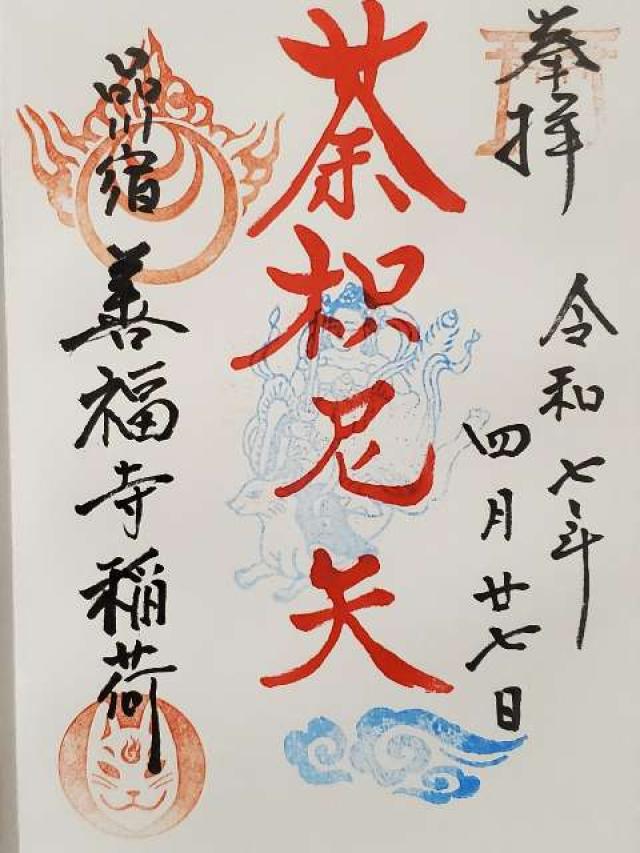 奉拝
令和七年
四月廿七日
荼枳尼天
品川宿
善福寺稲荷